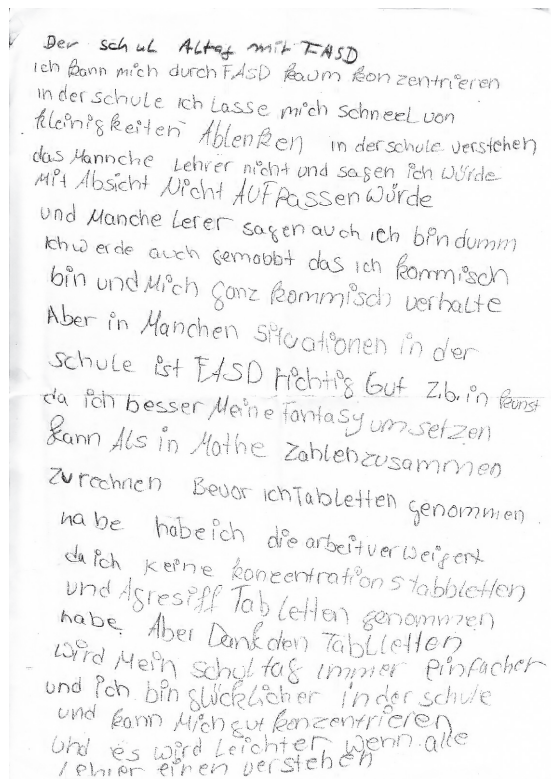 Der schul Altag mit FASD
ich kann mich durch FASD kaum konzentrieren
in der schule ich Lasse mich schneel von
kleinigkeiten Ablenken in der schule verstehen
das Mannche Lehrer nicht und sagen ich würde
Mit Absicht Nicht AUFPassen würde
und Manche Lerer sagen auch ich bin dumm
ich werde auch gemobbt das ich kommisch
bin und Mich ganz kommisch verhalte
Aber in Manchen situationen in der
schule ist FASD richtig Gut z.b. in kunst
da ich besser Meine fantasy umsetzen
kann Als in Mathe Zahlen zusammen
zu rechnen Bevor ich Tabletten genommen
habe habe ich die arbeit verweigert
da ich keine konzentrations tabbletten
und Agresiff Tabletten genommen
habe Aber Dank den Tablletten
wird Mein schultag immer einfacher
und ich bin glücklicher in der schule
und kann Mich gut konzentrieren
und es wird Leichter wenn alle
Lehrer einen verstehen